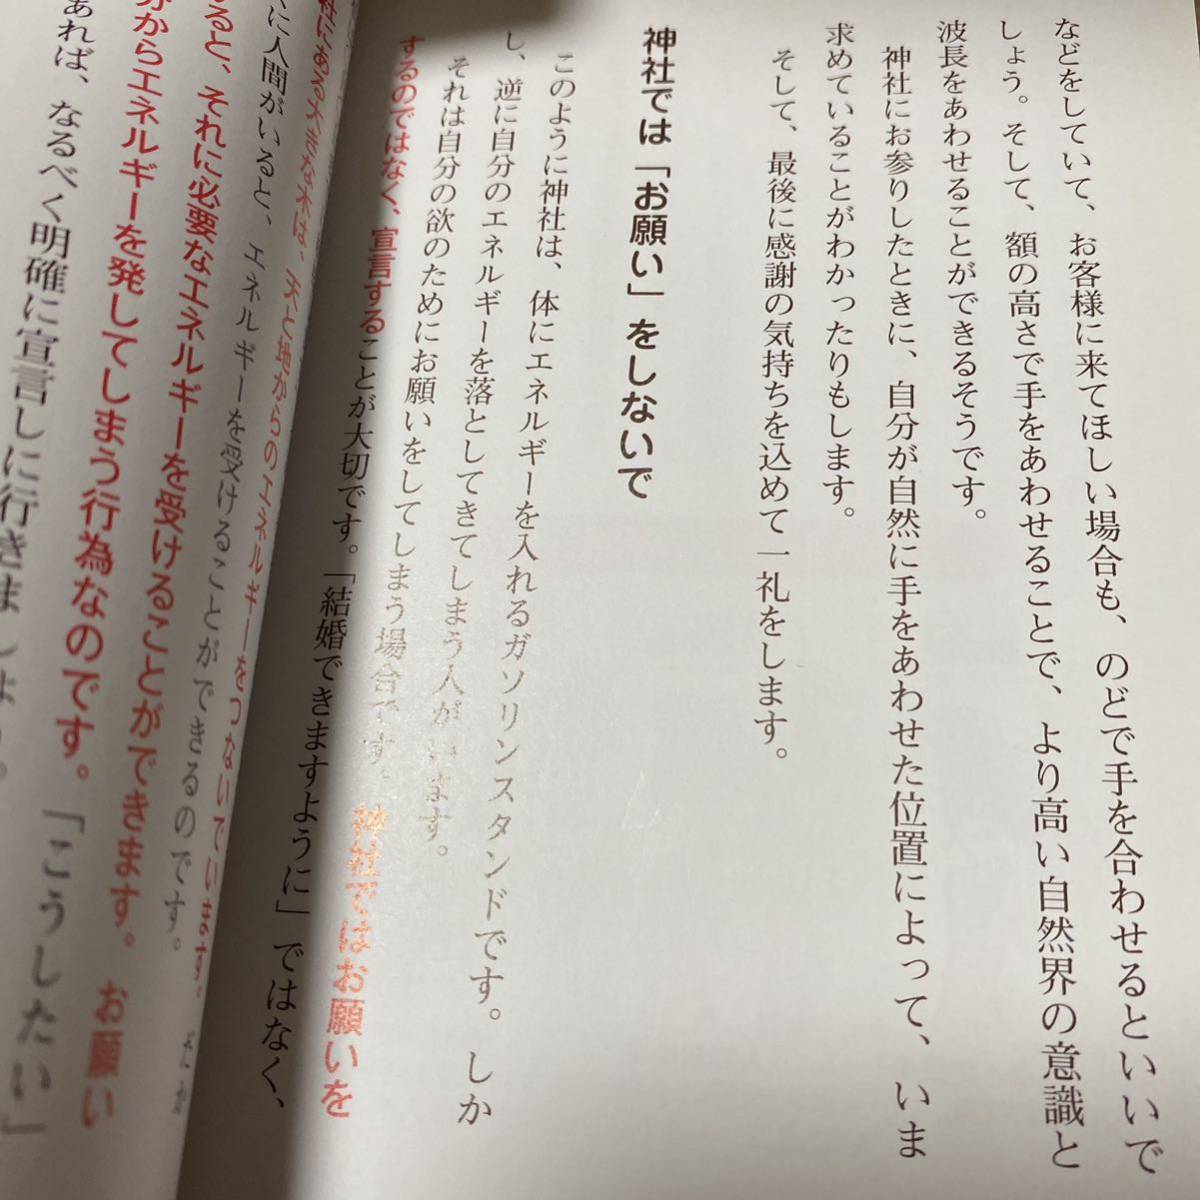 などをしていて、お客様に来てほしい場合も、のどで手を合わせるといいで
しょう。そして、額の高さで手をあわせることで、より高い自然界の意識と
波長をあわせることができるそうです。
神社にお参りしたときに、自分が自然に手をあわせた位置によって、いま
求めていることがわかったりもします。
そして、最後に感謝の気持ちを込めて一礼をします。
神社では「お願い」をしないで
このように神社は、体にエネルギーを入れるガソリンスタンドです。しか
し、逆に自分のエネルギーを落としてきてしまう人がいます。
それは自分の欲のためにお願いをしてしまう場合です。神社ではお願いを
するのではなく、宣言することが大切です。「結婚できますように」ではなく、
社にある大きな木は、天と地からのエネルギーをつないでいます。
くに人間がいると、エネルギーを受けることができるのです。
ると、それに必要なエネルギーを受けることができます。お願い
分からエネルギーを発してしまう行為なのです。「こうしたい」
あれば、なるべく明確に宣言しに行きましょう。